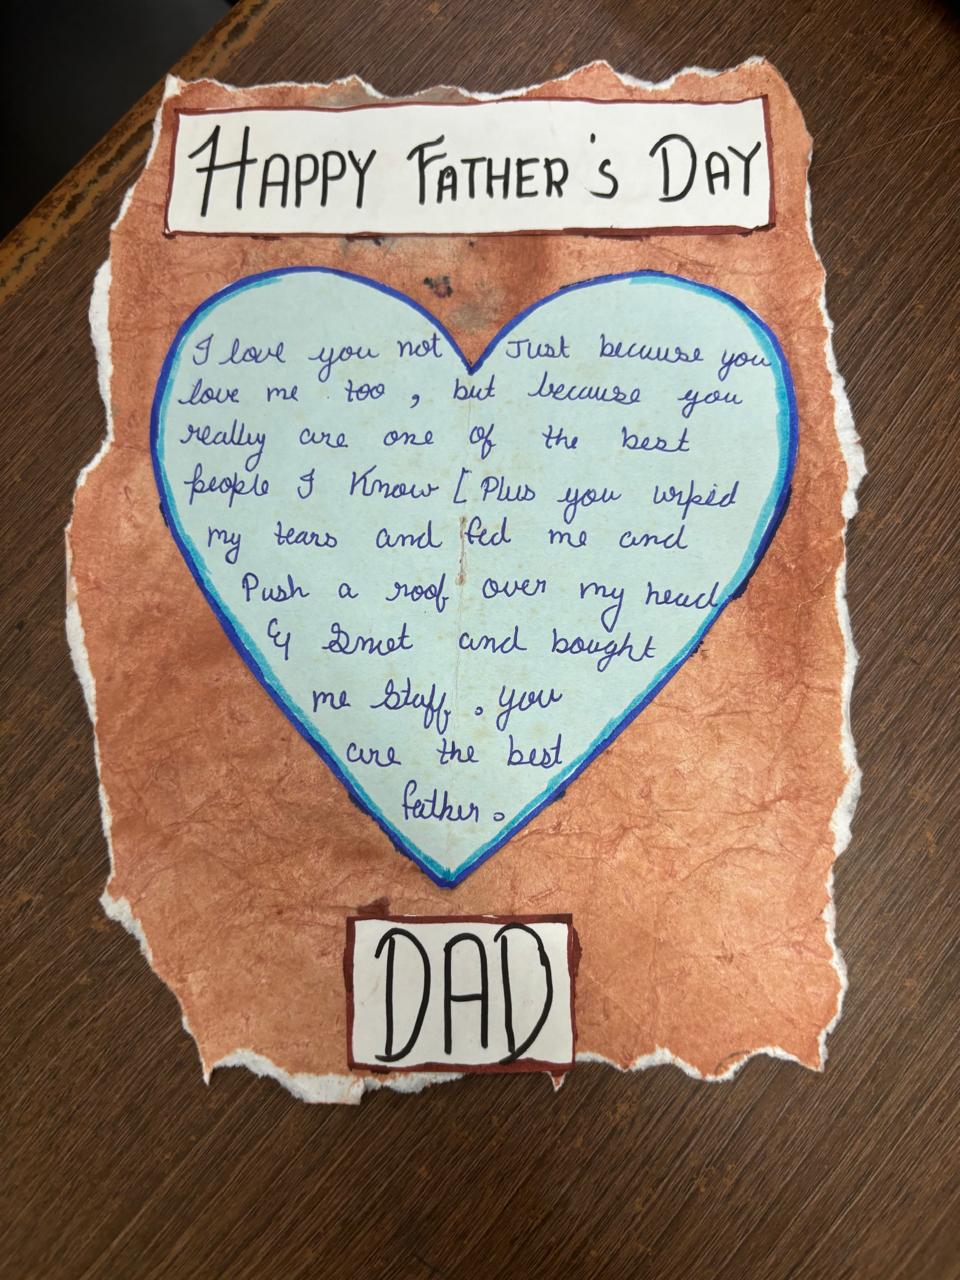 HAPPY FATHER'S DAY
I love you not Just because you
love me too, but because you
really are one of the best
people I Know [ Plus you wiped
my tears and fed me and
Push a roof over my head
and bought
me Stuff. you
are the best
father.
DAD